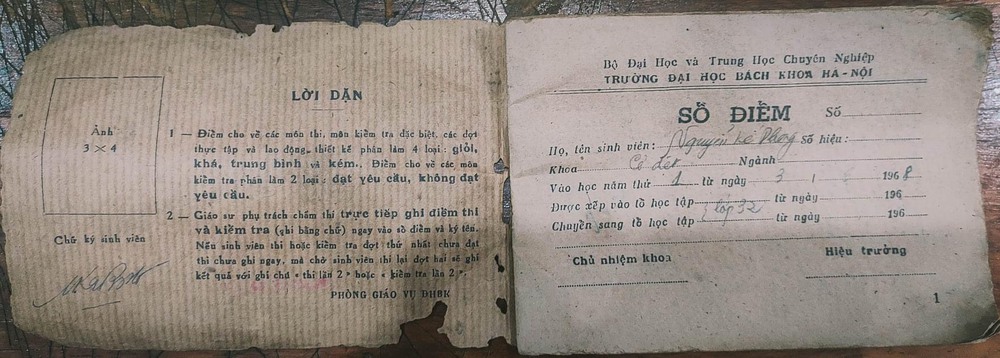 Ảnh
3 × 4
Chữ ký sinh viên
LỜI DẶN
1 — Điểm cho về các môn thi, môn kiểm tra đặc biệt, các đợt
thực tập và lao động, thiết kế phân làm 4 loại: giỏi,
khá, trung bình và kém.. Điểm cho về các môn
kiểm tra phân làm 2 loại: đạt yêu cầu, không đạt
yêu cầu.
2 — Giáo sư phụ trách chấm thi trực tiếp ghi điểm thi
và kiểm tra (ghi bằng chữ) ngay vào sổ điểm và ký tên.
Nếu sinh viên thi hoặc kiểm tra đợt thứ nhất chưa đạt
thì chưa ghi ngay, mà chờ sinh viên thi lại đợt hai sẽ ghi
kết quả với ghi chú « thi lần 2 » hoặc « kiểm tra lần 2 ».
PHÒNG GIÁO VỤ ĐHBK
Bộ Đại Học và Trung Học Chuyên Nghiệp
TRƯỜNG ĐẠI HỌC BÁCH KHOA HÀ-NỘI
SỔ ĐIỂM Số
Họ, tên sinh viên: Nguyễn Số hiệu:
Khoa Ngành
Vào học năm thứ 1 từ ngày 3 1 1968
Được xếp vào tổ học tập từ ngày 196
Chuyển sang tổ học tập lớp 32 từ ngày 196
Chủ nhiệm khoa Hiệu trưởng
1